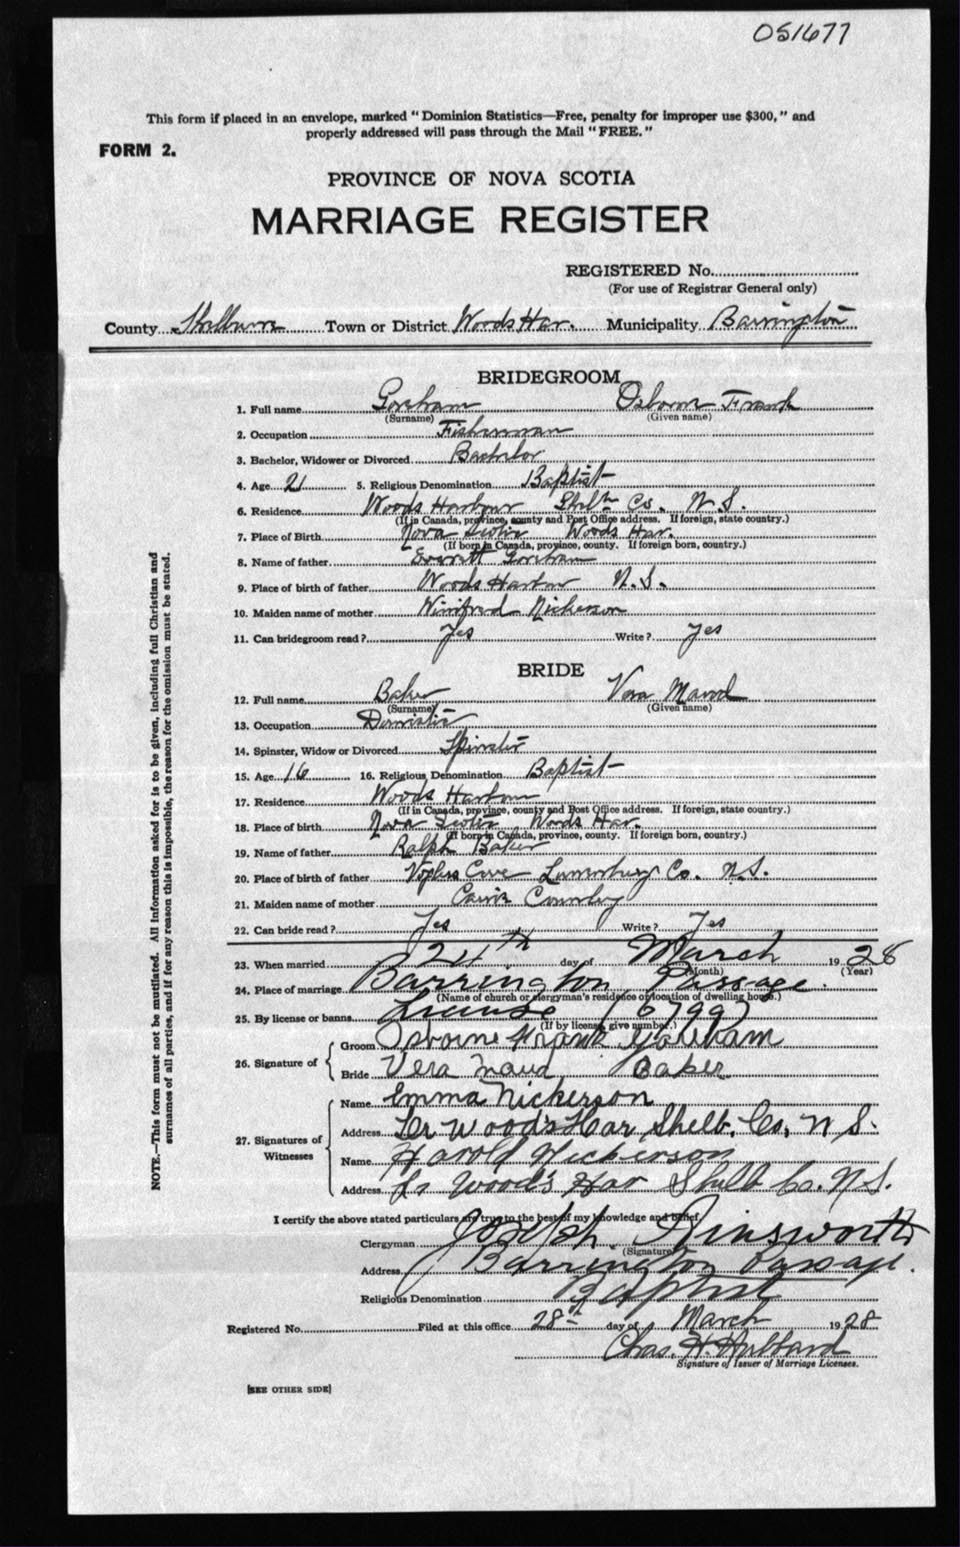 051677
This form if placed in an envelope, marked "Dominion Statistics—Free, penalty for improper use $300," and
properly addressed will pass through the Mail "FREE."
FORM 2.
PROVINCE OF NOVA SCOTIA
MARRIAGE REGISTER
REGISTERED No.
(For use of Registrar General only)
County Shelburne Town or District Woods Har. Municipality Barrington
BRIDEGROOM
1. Full name Goreham Osborn Frank
(Surname) (Given name)
2. Occupation Fisherman
3. Bachelor, Widower or Divorced Bachelor
4. Age 21 5. Religious Denomination Baptist
6. Residence Woods Harbour Shelb Co. N.S.
(If in Canada, province, county and Post Office address. If foreign, state country.)
7. Place of Birth Nova Scotia Woods Har.
(If born in Canada, province, county. If foreign born, country.)
8. Name of father Everett Goreham
9. Place of birth of father Woods Harbour N.S.
10. Maiden name of mother Winifred Nickerson
11. Can bridegroom read? Yes Write? Yes
BRIDE
12. Full name Baker Vera Maud
(Surname) (Given name)
13. Occupation Domestic
14. Spinster, Widow or Divorced Spinster
15. Age 16 16. Religious Denomination Baptist
17. Residence Woods Harbour
(If in Canada, province, county and Post Office address. If foreign, state country.)
18. Place of birth Nova Scotia Woods Har.
(If born in Canada, province, county. If foreign born, country.)
19. Name of father Ralph Baker
20. Place of birth of father Voglers Cove Lunenburg Co. N.S.
21. Maiden name of mother
22. Can bride read? Yes Write? Yes
23. When married 24th day of March 1928
(Month) (Year)
24. Place of marriage Barrington Passage.
(Name of church or clergyman's residence or location of dwelling house.)
25. By license or banns License
(If by license, give number.)
26. Signature of
Groom Osborne Frank Goreham
Bride Vera Maud Baker
27. Signatures of Witnesses
Name Emma Nickerson
Address Lr Wood's Har Shelb. Co, N S.
Name Harold Nickerson
Address Lr Wood's Har Shelb Co. N.S.
I certify the above stated particulars are true to the best of my knowledge and belief.
Clergyman Joseph Ainsworth
(Signature)
Address Barrington Passage.
Religious Denomination Baptist
Registered No. Filed at this office 28th day of March 1928
Chas. H. Hubbard
Signature of Issuer of Marriage Licenses.
[SEE OTHER SIDE]
NOTE.—This form must not be mutilated. All information asked for is to be given, including full Christian and
surnames of all parties, and if for any reason this is impossible, the reason for the omission must be stated.